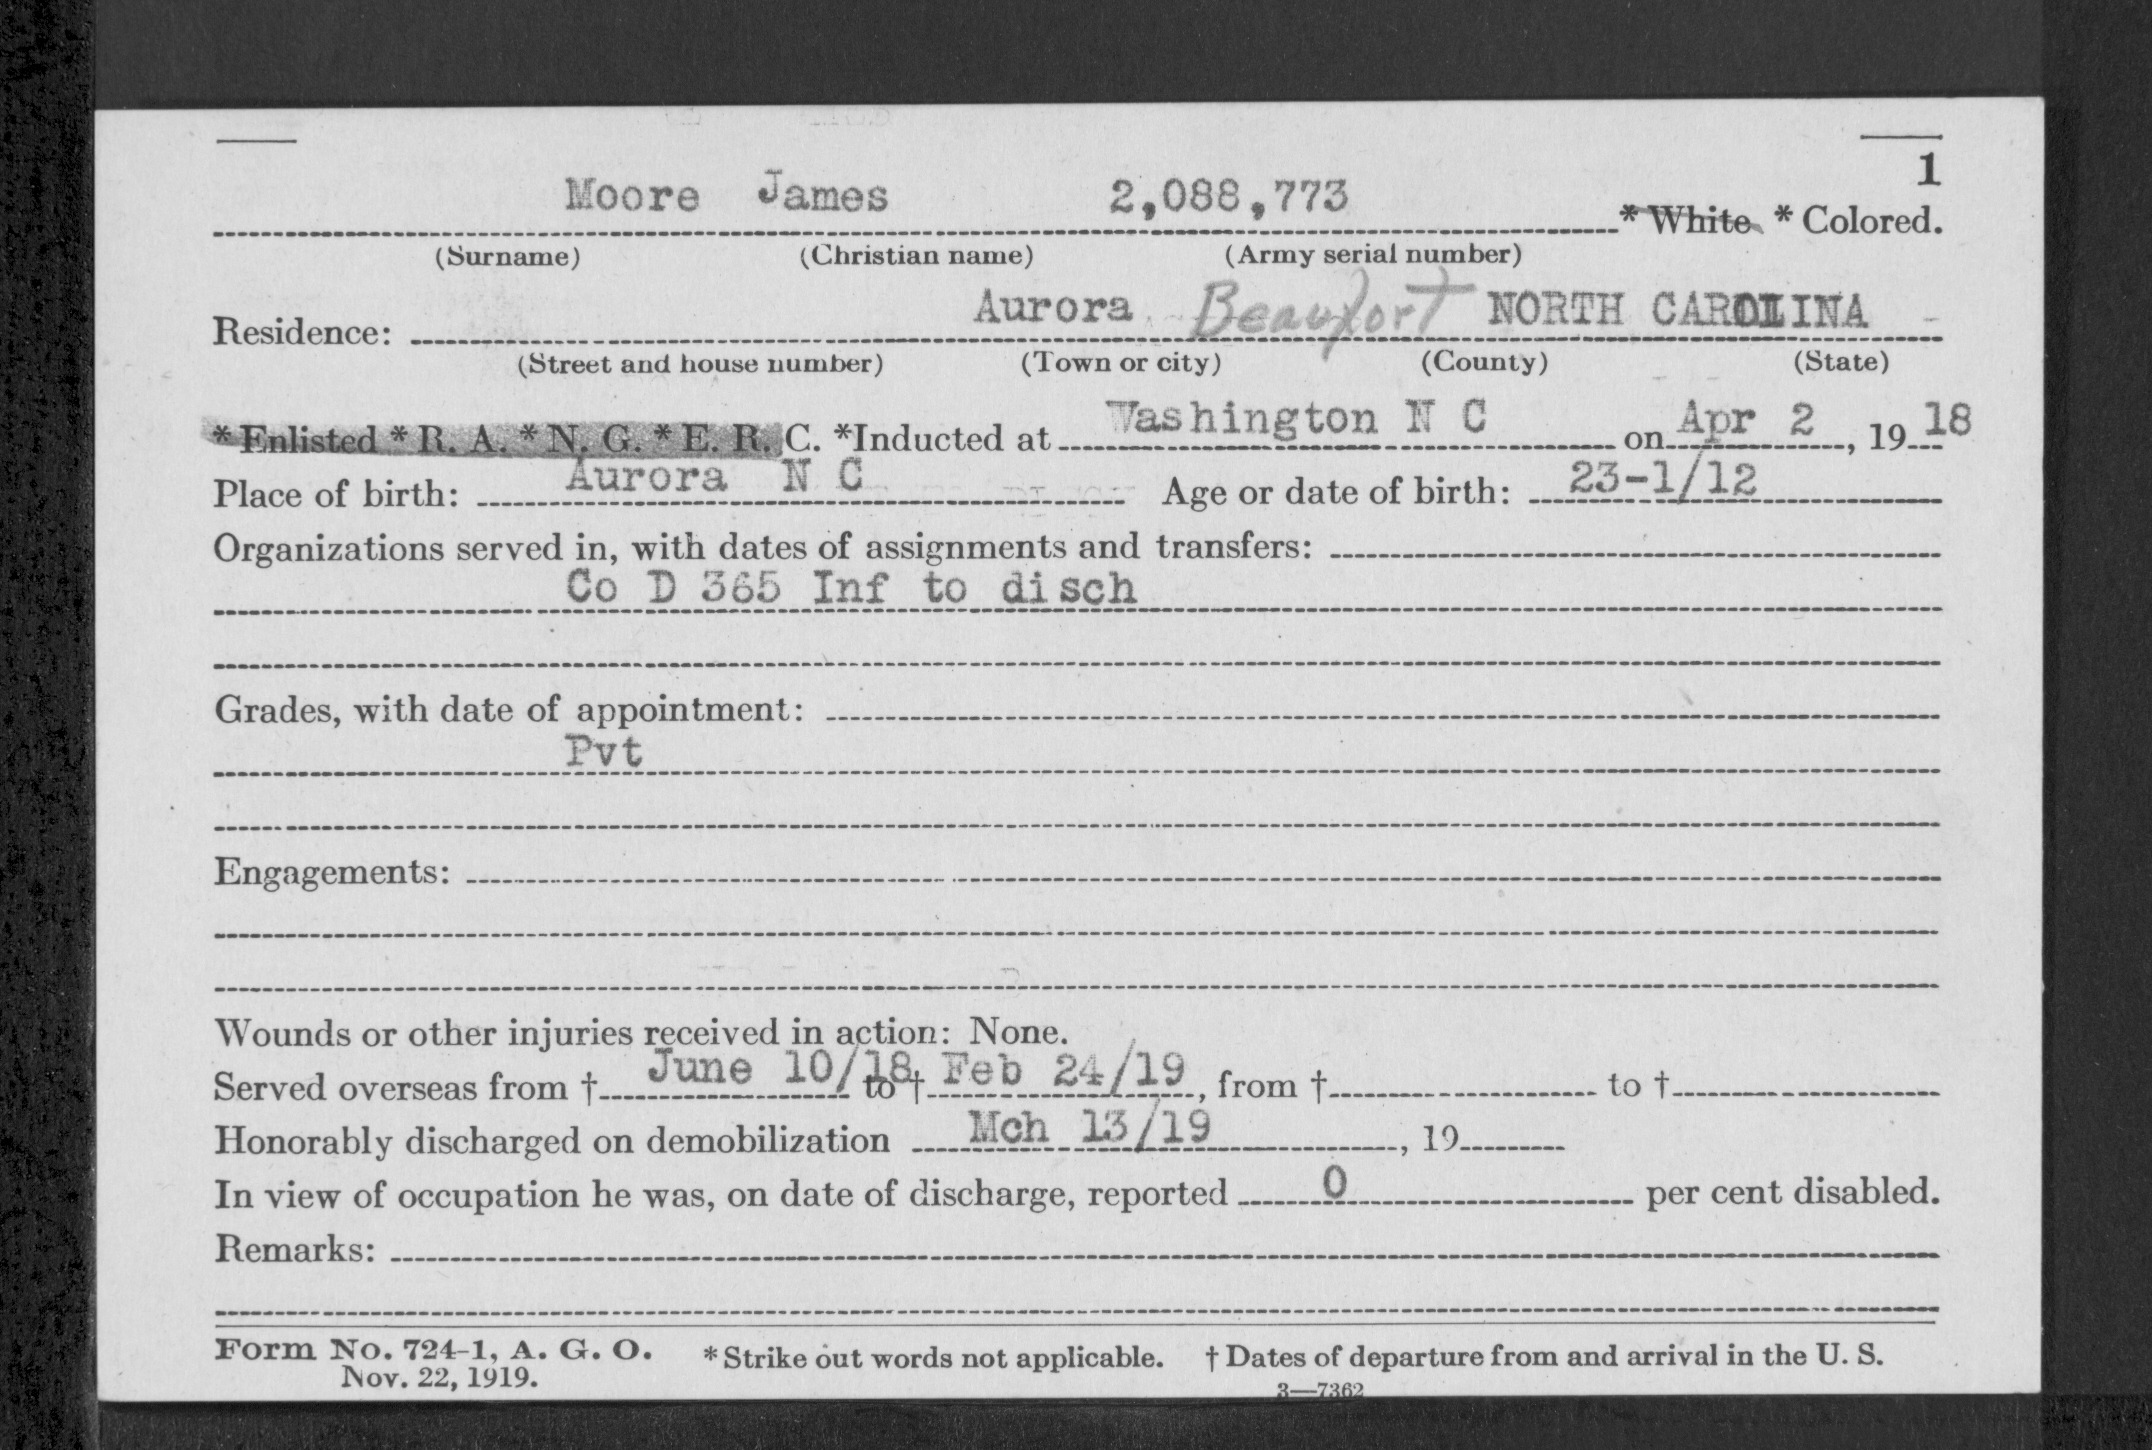 1
Moore James 2,088,773 * White * Colored.
(Surname) (Christian name) (Army serial number)
Residence: Aurora Beaufort NORTH CAROLINA
(Street and house number) (Town or city) (County) (State)
* Enlisted * R. A. * N. G. * E. R. C. *Inducted at Washington N C on Apr 2, 19 18
Place of birth: Aurora N C Age or date of birth: 23-1/12
Organizations served in, with dates of assignments and transfers:
Co D 365 Inf to disch
Grades, with date of appointment:
Pvt
Engagements:
Wounds or other injuries received in action: None.
Served overseas from † June 10/18 to † Feb 24/19, from † to †
Honorably discharged on demobilization Mch 13/19, 19
In view of occupation he was, on date of discharge, reported 0 per cent disabled.
Remarks:
Form No. 724-1, A. G. O. * Strike out words not applicable. † Dates of departure from and arrival in the U. S.
Nov. 22, 1919.
3—7362